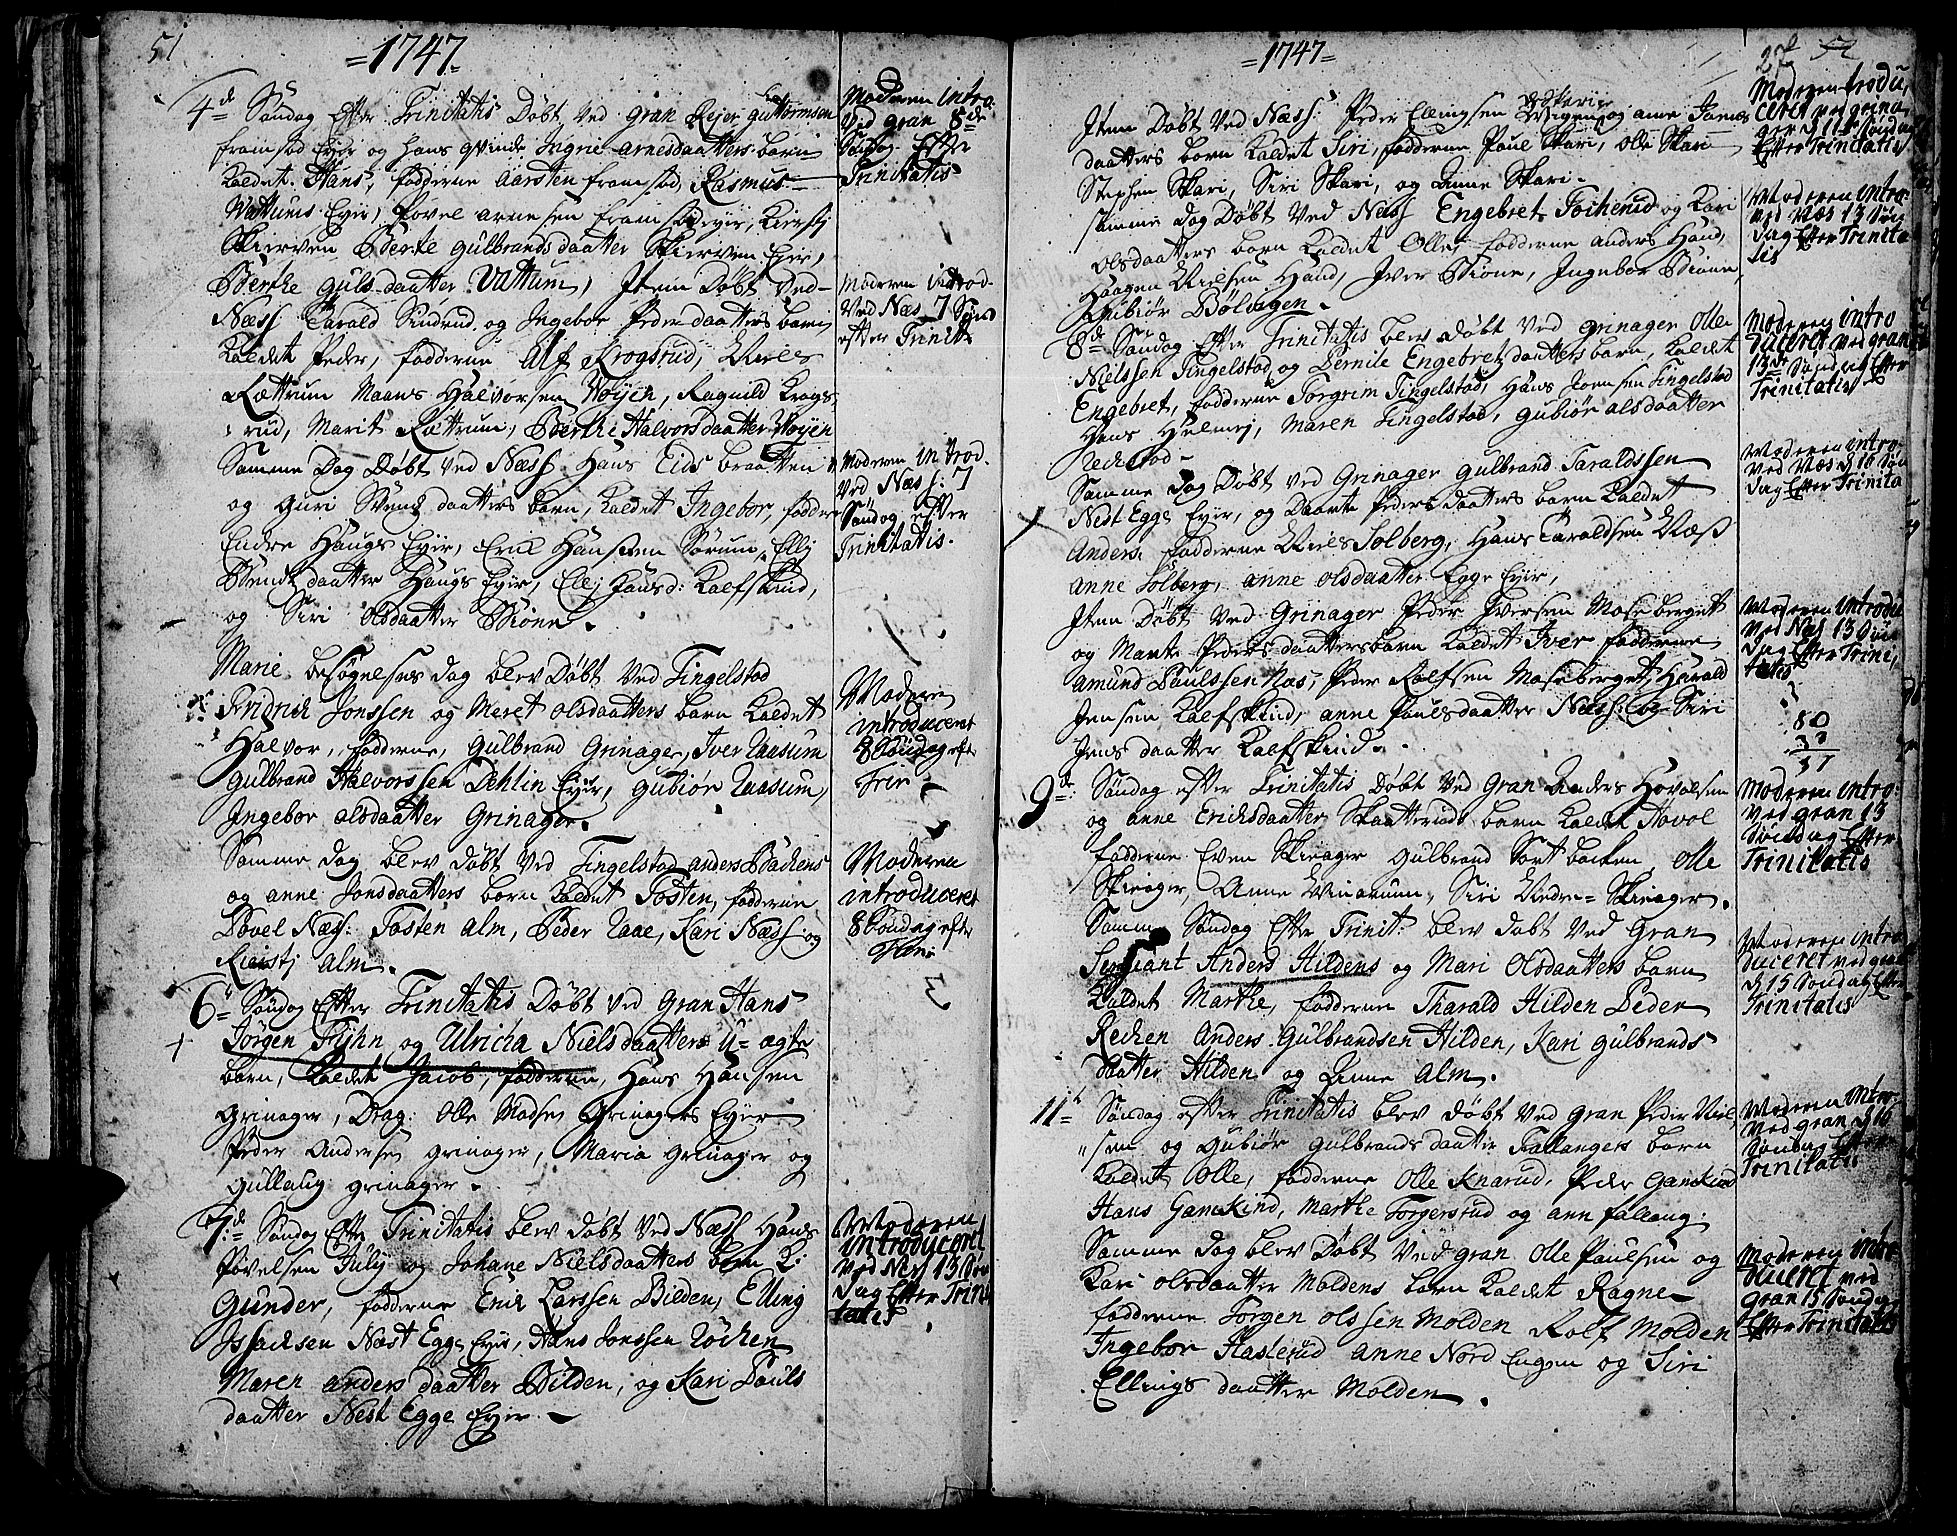 51
=1747=
4de Søndag Efter Trinitatis Døbt ved Gran Rejer Guttormsen
framstad Eyer og Hans qvinde Ingrie Arnesdaatters barn
kaldet Hans, fadderne Aarsten framstad, Rasmus
Wattums Eyer, Povel Arnesen framstad eyer, Kiersti
Skierven Berte Gulbrandsdaatter Skierven Eyer,
Berthe Gulsdaatter Vattum, Item Døbt ved
Næss Tarald Sindrud og Ingebor Pedersdaatters barn
kaldet Peder, fadderne Alf Krogsrud, Niels
Rættrum Maans Halvorsen Woyen, Ragnild Krogs,
rud, Marit Rættrum, Berthe Halvorsdaatter Woyen
Samme Dag Døbt ved Næss Hans Eidsbraatten
og Guri Svendsdaatters barn, kaldet Ingebor, fadderne
Endre Haugs Eyer, Erik Hansen Sørum, Elli
Svendsdaatter Haugs Eyer, Eli Hansd: Kalfskind,
og Siri Olsdaatter Bione.
Marie besøgelses dag blev Døbt ved Tingelstad
Fridrich Jonssen og Meret Olsdaatters barn kaldet
Halvor, fadderne, Gulbrand Grinager, Iver Raasum
Gulbrand Halvorssen Dehlin Eyer, Gubiør Raasum,
Ingebor Olsdaatter Grinager.
Samme dag blev døbt ved Tingelstad Anders Bachens
og Anne Jonsdaatters barn kaldet Tosten, fadderne
Povel Næss: Tosten Alm, Peder Raae, Kari Næss og
Kiersti Alm.
6te Søndag Efter Trinitatis Døbt ved Gran Hans
Jørgen Tryhn og Ulricha Nielsdaatters U=ægte
barn, kaldet Jacob, fadderne, Hans Hansen
Grinager, Drag: Olle Madsen Grinagers Eyer
Peder Andersen Grinager, Maria Grinager og
Gullaug Grinager.
7de Søndag Efter Trinitatis blev døbt ved Næss Hans
Povelsen July og Johane Nielsdaatters barn k:
Gunder, fadderne Erik Larssen Bilden, Elling
Issachsen Næst Egge Eyer, Hans Jonssen Røchen
Maren Andersdaatter Bilden, og Kari Pauls
daatter Nest Egge Eyer.
Moderen intro:
ved Gran 8de
Søndag Efter
Trinitatis
Moderen introd.
ved Næs 7 Sønd
efter Trinit:
Moderen introd.
ved Næss: 7
Søndag efter
Trinitatis.
Moderen
introduceret
8 Søndag eft
Trin
Moderen
introduceret
8 Søndag eft
Trin
Moderen
introduceret
ved Ness 13 Søn
dag Efter Trini
tatis
=1747=
Item Døbt ved Næss: Peder Ellingsen og Anne Jons
daatters barn kaldet Siri, fadderne Paul Skari, Olle Skari
Stephen Skari, Siri Skari, og Anne Skari.
Samme dag Døbt ved Næss Engebret Tocherud og Kari
Olsdaatters barn kaldet Olle, fadderne Anders Haand,
Haagen Nielsen Haand, Iver Bione, Ingebor Bione
Gubiør Bølvegen.
8de Søndag Efter Trinitatis blev døbt ved Grinager Olle
Nielssen Tingelstad og Pernile Engebretzdaatters barn, kaldet
Engebret, fadderne Torgrim Tingelstad, Hans Jonssen Tingelstad
Hans Hulmej, Maren Tingelstad, Gubiør Olsdaatter
Rechstad
Samme Dag Døbt ved Grinager Gulbrand Taraldssen
Nest Egge Eyer, og Daarte Pedersdaatters barn kaldet
Anders fadderne Niels Solberg, Hans Taraldsen Næss
Anne Solberg, Anne Olsdaatter Egge Eyer,
Item Døbt ved Grinager Peder Iversen Moseberget
og Marte Pedersdaatters barn kaldet Iver fadderne
Amund Paulssen Næs, Peder Rolfsen Moseberget, Harald
Jensen Kalfskind, Anne Paulsdaatter Næss og Siri
Jensdaatter Kalfskind.
9de: Søndag efter Trinitatis Døbt ved Gran Anders Hovelsen
og Anne Erichsdaatter Skatteruds barn kaldet Hovel
fadderne Even Skiager Gulbrand Sortbacken, Olle
Skiager, Anne Winorum, Siri Nedre=Skiager.
Samme Søndag Efter Trinit: blev døbt ved Gran
Sergiant Anders Hildens og Mari Olsdaatters barn
kaldet Marthe, fadderne Tharald Hilden Peder
Rechen Anders Gulbrandsen Hilden, Kari Gulbrands
daatter Hilden og Anne Alm.
11te Søndag efter Trinitatis blev døbt ved Gran Peder Niel
"sen og Gubiør Gulbrandsdaatter Fallangers barn
kaldet Olle, fadderne Olle Knarud, Peder Gamskind
Hans Gamskind, Marthe Torgersrud og Ann Fallang:
Samme dag blev Døbt ved Gran Olle Paulsen og
Kari Olsdaatter Moldens barn kaldet Ragne
fadderne Torgen Olssen Molden Rolf Molden
Ingebor Haslerud Anne Nord Engen og Siri
Ellingsdaatter Molden.
Moderen introdu,
ceret ved Grina
ger d 11te Søndag
Efter Trinitatis
Moderen intro:
ved Næs 13 Søn
dag Efter Trinita
tis
Moderen intro
duceret ved Gran
13de Søndag Efter
Trinitatis
Moderen intro
ved Næs d 16 Søn
dag Efter Trinita
Moderen introdu
ved Næs 13 Søn
dag Efter Trini,
tatis
Moderen intro:
ved Gran 13
Søndag Efter
Trinitatis
Moderen intro
duceret ved Gran
d 15 Søndag Efter
Trinitatis
Moderen intro:
ved Gran d 16
Søndag Efter
Trinitatis
Moderen intro
duceret ved
Gran 15 Søndag
Efter Trinitatis